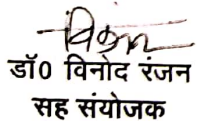 डॉ0 विनोद रंजन
सह संयोजक